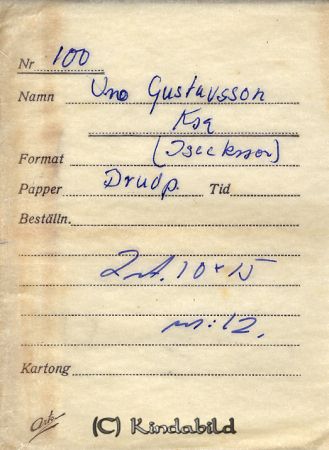 Nr 100
Namn Uno Gustavsson
Ksa
Format (Isecksson)
Papper Brudp. Tid
Beställn.
2 st. 10x15
nr: 12,
Kartong
(C) Kindabild